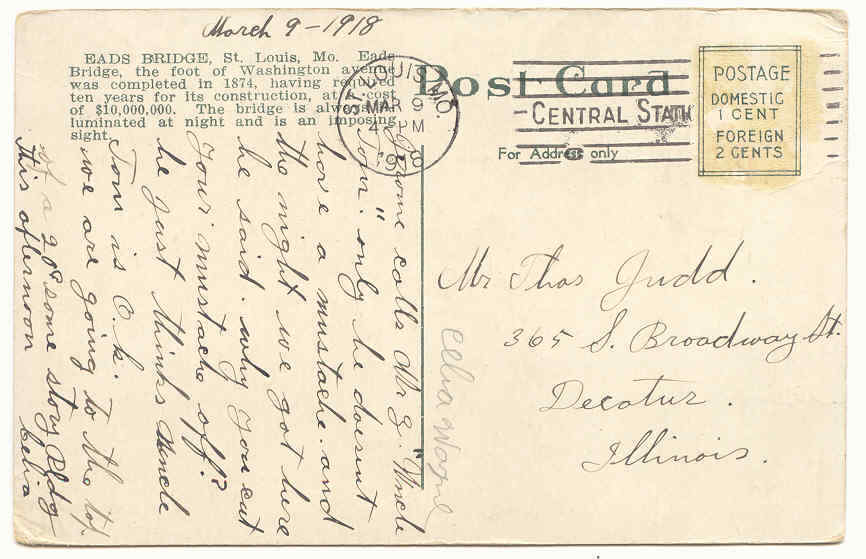 March 9-1918
EADS BRIDGE, St. Louis, Mo. Eads
Bridge, the foot of Washington avenue
was completed in 1874, having required
ten years for its construction, at a cost
of $10,000,000. The bridge is always il-
luminated at night and is an imposing
sight.
Post Card
For Address only
ST. LOUIS, MO.
MAR 9
4 PM
1918
CENTRAL STATI
POSTAGE
DOMESTIC
1 CENT
FOREIGN
2 CENTS
Jerome calls Mr Z. "Uncle
Tom" only he doesn't
have a mustache. and
the night we got here
he said. why you cut
your mustache off?
he just thinks Uncle
Tom is O.k.
we are going to the top
of a 20 some story Bldg
this afternoon
Mr Thos Judd.
365 S. Broadway St.
Decatur.
Illinois.